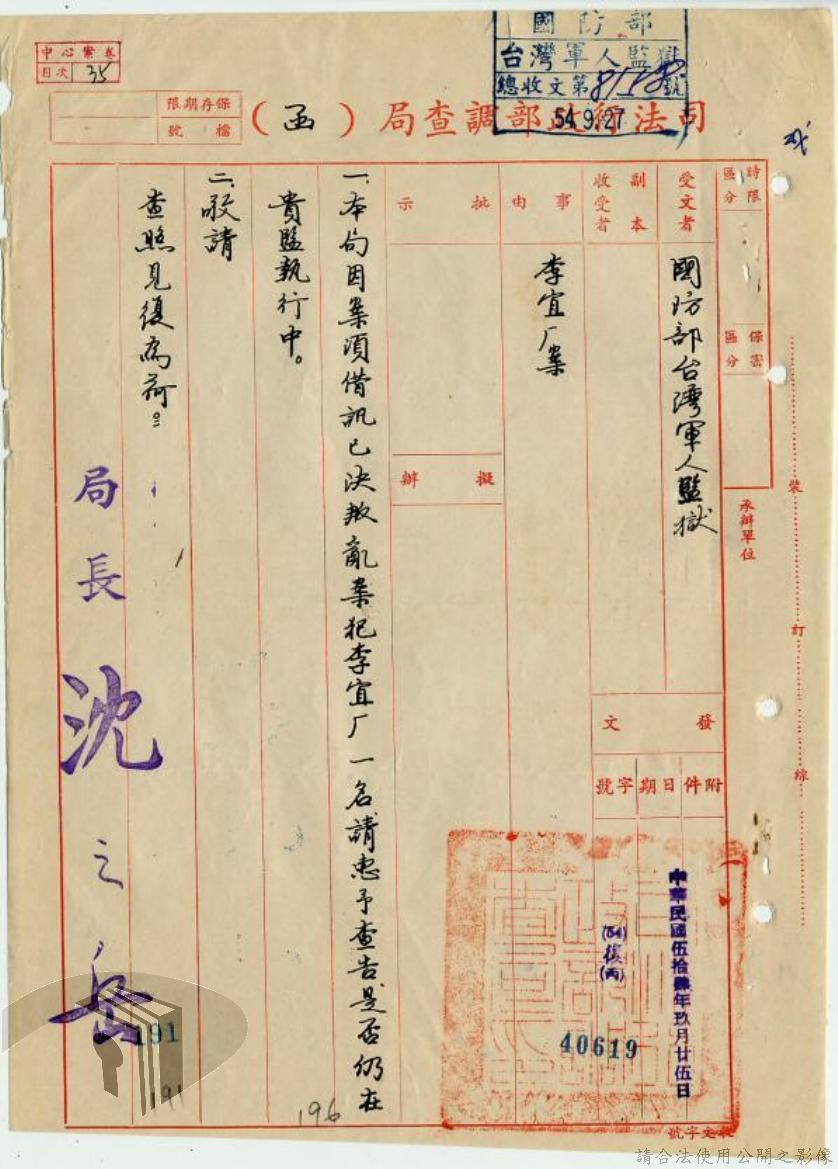 國防部
台灣軍人監獄
總收文第 號
54.9.27
中心案卷
目次 35
保存期限
檔號
司法行政部調查局(函)
時限
區分
保密
區分
受文者
國防部台灣軍人監獄
副本
收受者
事由
李宜厂案
批示
擬辦
一、本局因案須借訊已決叛亂案犯李宜厂一名請惠予查告是否仍在
貴監執行中。
二、敬請
查照見復為荷。
局長沈之岳
承辦單位
裝
訂
線
發文
附件
日期
字號
中華民國伍拾肆年玖月廿五日
(54)
(丙)
40619
191
191
196
收文字號
請合法使用公開之影像